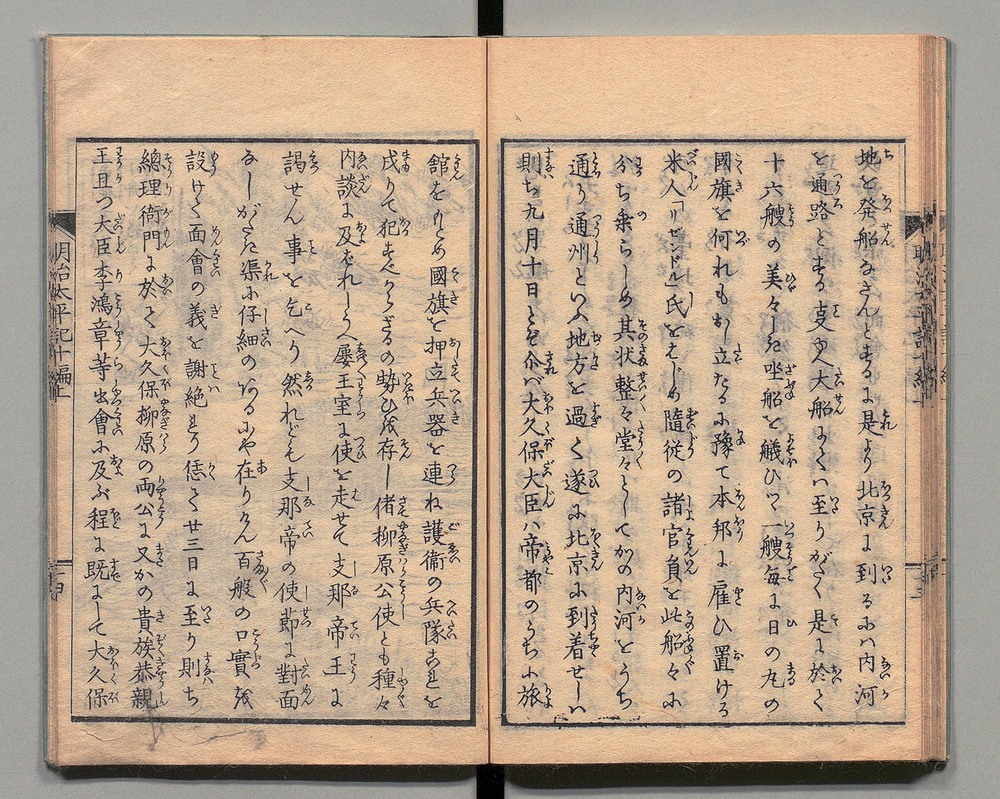 地を発船なさんとするに是より北京に到るには内河
を通路とする支那大船にては至りがたく是に於て
十六艘の美々しき坐船を艤ひつ一艘毎に日の丸の
國旗を何れもおし立たるは豫て本邦に雇ひ置ける
米人「リゼンドル」氏をはじめ隨従の諸官員を此船々に
分ち乗らしめ其状整々堂々としてかの内河をうち
通り通州といふ地方を過て遂に北京に到着せしハ
則ち九月十日とぞ介バ大久保大臣ハ帝都のうちに旅
館をもとめ國旗を押立兵器を連ね護衛の兵隊これを
戍りて犯すべからざるの勢ひを存し偖柳原公使とも種々
内談に及ばれしうへ屡王室に使を走せて支那帝王に
謁せん事を乞へり然れども支那帝の使節に對面
なしがたき渠に仔細のあるにや在りけん百般の口實を
設けて面會の義を謝絶せり恁て廿三日に至り則ち
總理衙門に於て大久保柳原の両公に又かの貴族恭親
王且つ大臣李鴻章等出會に及ぶ程に既にして大久保
明治太平記十編上